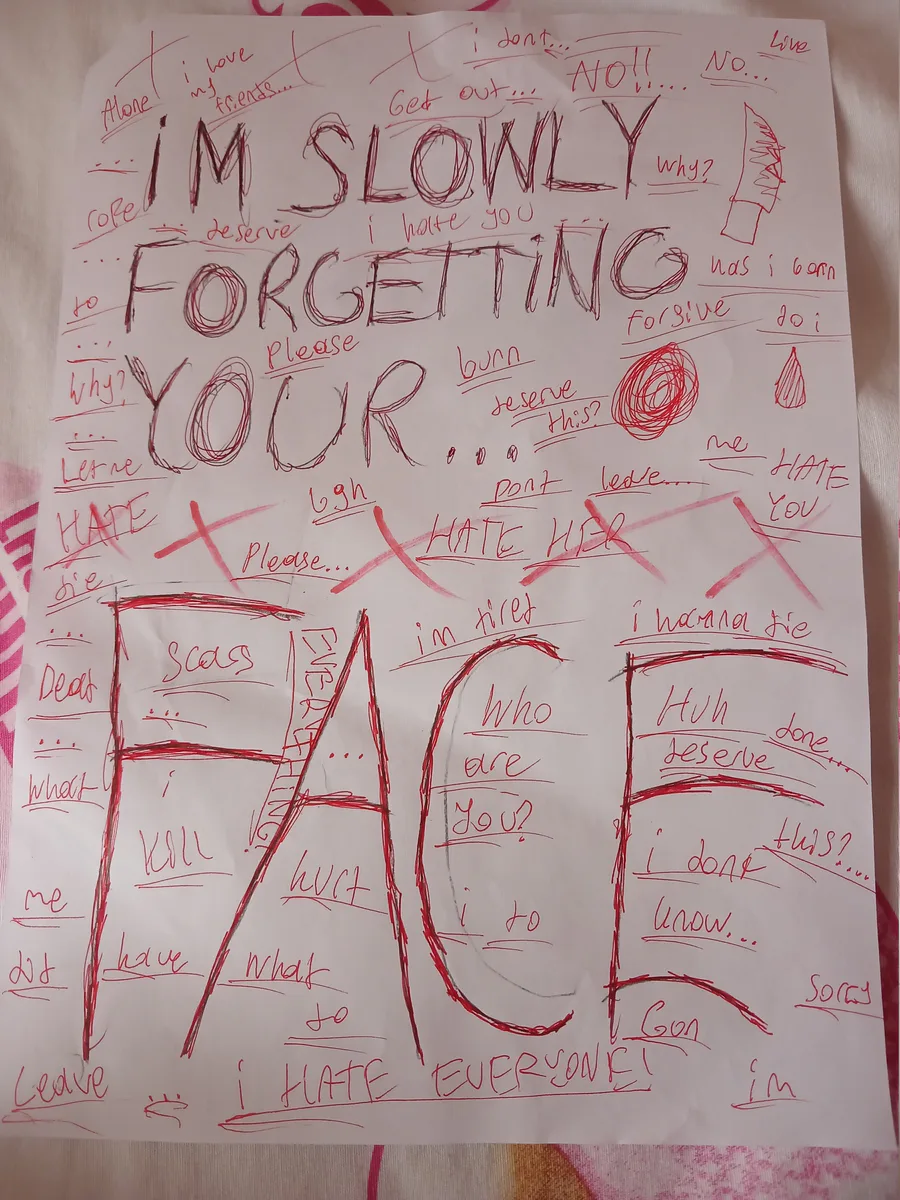 i dont... Live
i love my friends...
NO!!..... NO...
Alone Get out...
iM SLOWLY
... Why?
rope ... deserve i hate you ...
...
FORGETTiNG
was i born
to forgive do i
... Please
Why? YOUR... burn
deserve this?
...
Let me me HATE YOU
Ugh Dont leave...
HATE Please... HATE HER
die
... im tired i wanna die
FACE
EVERYTHING!
Scars
Dead ... Who Huh done...
... ... are deserve
What i you? this?...
kill i dont
hurt i know...
me i do
did have what Sorry
to God
Leave ... i HATE EVERYONE! im